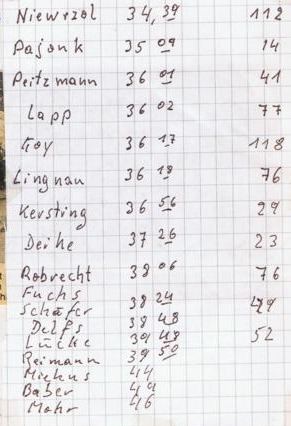 Niewrzol 34,39 112
Pajonk 35 09 14
Peitzmann 36 01 41
Lapp 36 02 77
Koy 36 17 118
Lingnau 36 18 76
Kersting 36 56 29
Deihe 37 26 23
Robrecht 38 06 76
Fuchs
Schäfer 38 24 49
Delfs 38 48
Lücke 39 48 52
Reimann 39 50
Miehus 44
Baber 49
Mohr 46